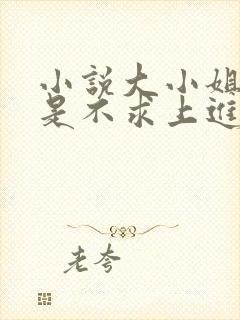 小說大小姐
是不求上進
老夸